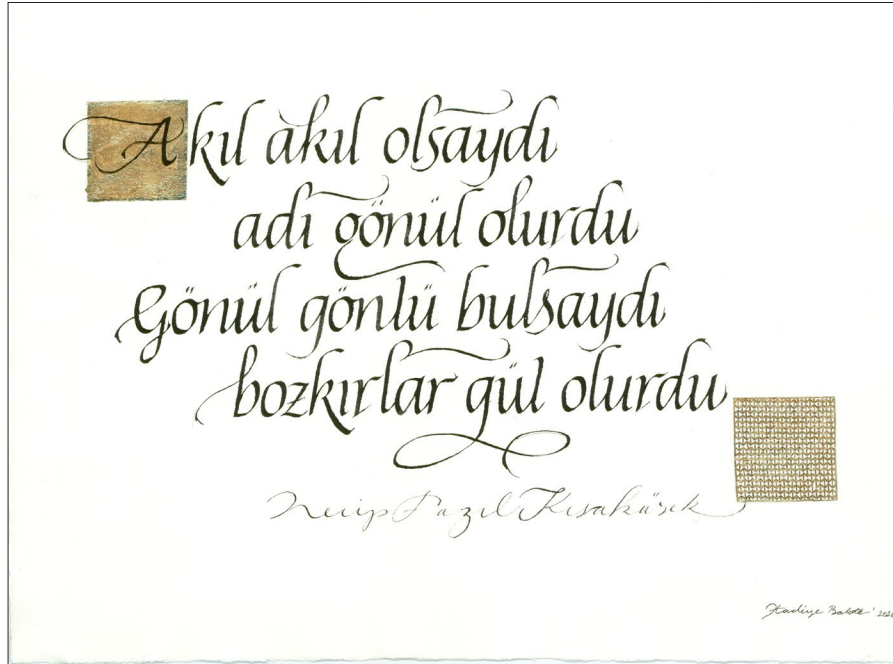 Akıl akıl olsaydı
adı gönül olurdu
Gönül gönlü bulsaydı
bozkırlar gül olurdu
Necip Fazıl Kısakürek
Hadiye